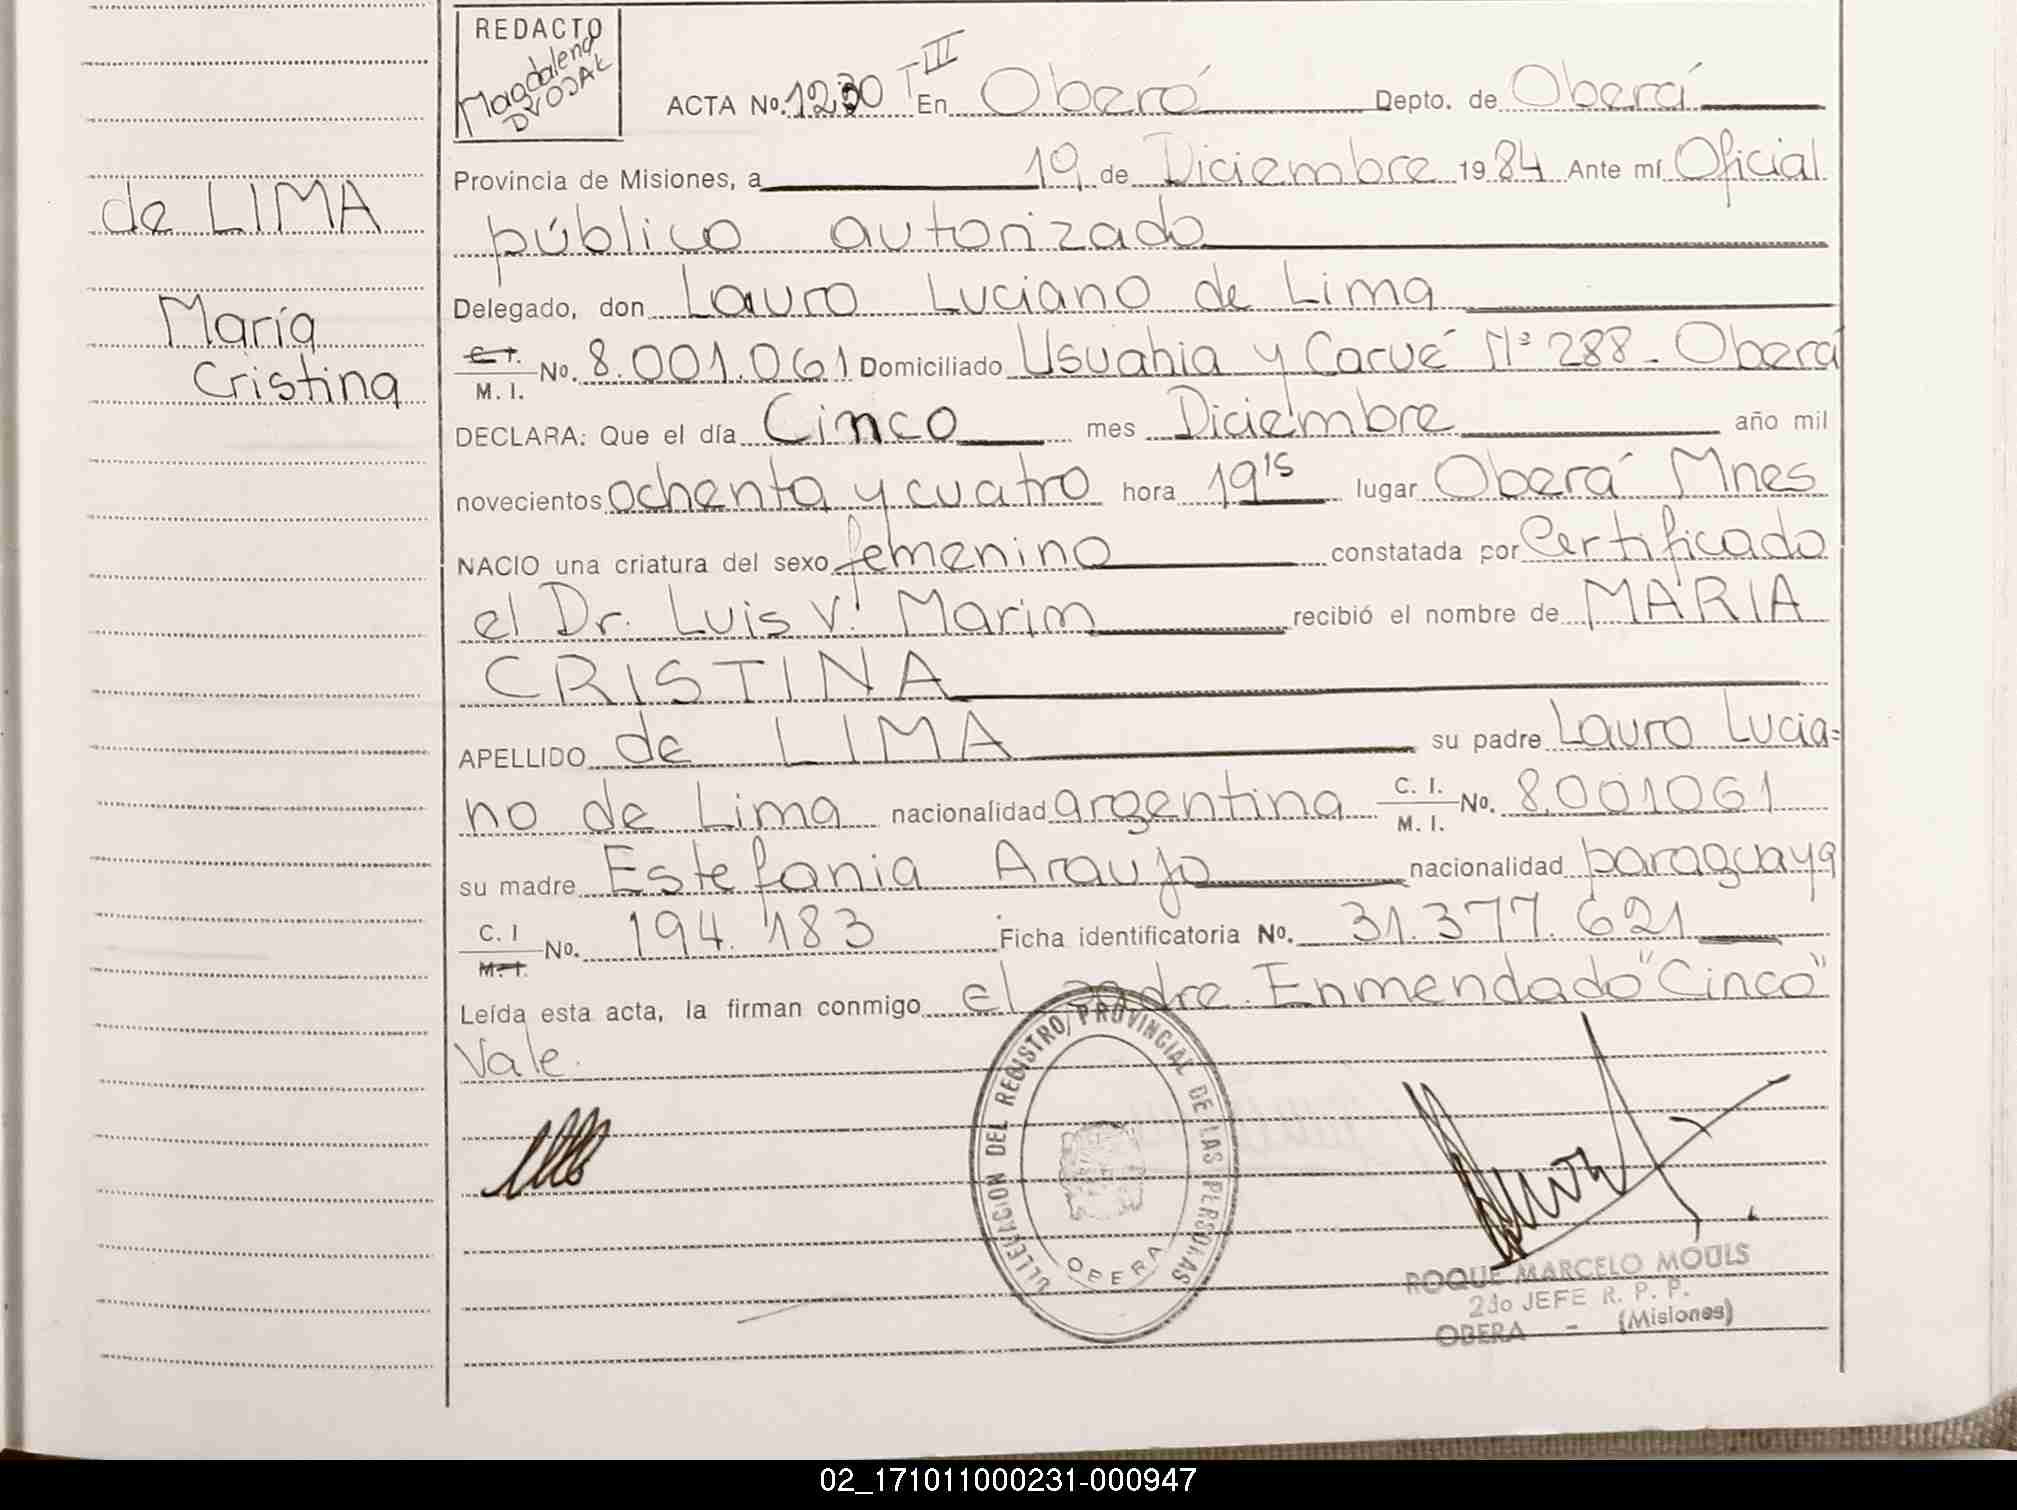 REDACTO
Magdalena
DVOJAK
ACTA No. 1230 T III En Oberá Depto. de Oberá
Provincia de Misiones, a 19 de Diciembre 1984 Ante mí Oficial
público autorizado
Delegado, don Lauro Luciano de Lima
C. I. M. I. No. 8.001.061 Domiciliado Usuahia y Carué Nº 288 - Oberá
DECLARA: Que el día Cinco mes Diciembre año mil
novecientos ochenta y cuatro hora 19 15 lugar Oberá Mnes
NACIO una criatura del sexo femenino constatada por Certificado
el Dr. Luis V. Marim recibió el nombre de MARIA
CRISTINA
APELLIDO de LIMA su padre Lauro Lucia=
no de Lima nacionalidad argentina C. I. M. I. No. 8.001061
su madre Estefania Araujo nacionalidad paraguaya
C. I M. I. No. 194.183 Ficha identificatoria No. 31.377.621
Leída esta acta, la firman conmigo el padre. Enmendado "Cinco"
Vale.
de LIMA
María
Cristina
DELEGACION DEL REGISTRO PROVINCIAL DE LAS PERSONAS
OBERA
ROQUE MARCELO MOULS
2do JEFE R. P. P.
OBERA - (Misiones)
02_171011000231-000947